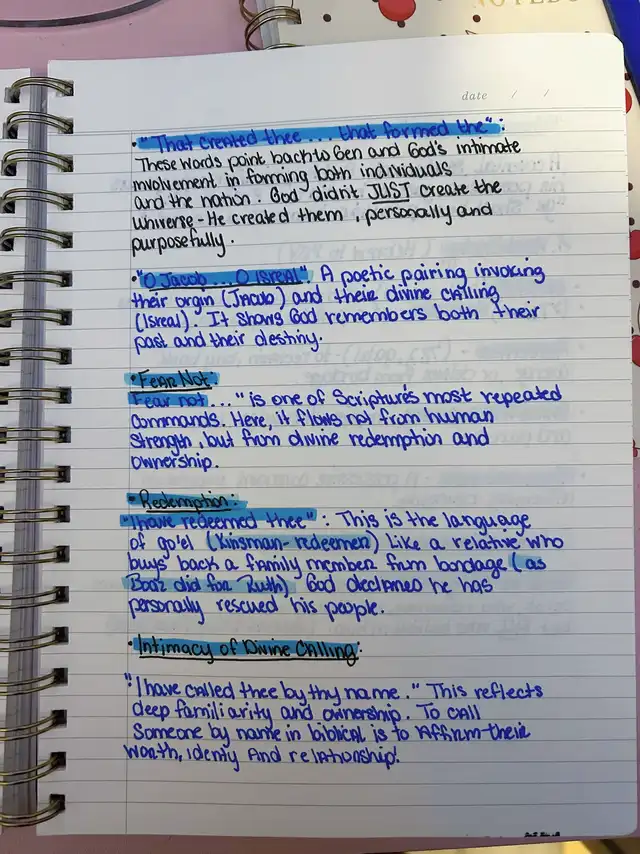 NOTEBO
date / /
• "That created thee... that formed the":
These words point back to Gen and God's intimate
involvement in forming both individuals
and the nation. God didn't JUST create the
universe - He created them, personally and
purposefully.
• "O Jacob... O Isreal" A poetic pairing invoking
their orgin (Jacob) and their divine calling
(Isreal). It shows God remembers both their
past and their destiny.
• Fear Not.
Fear not..." is one of Scripture's most repeated
commands. Here, it flows not from human
strength, but from divine redemption and
ownership.
• Redemption:
"I have redeemed thee": This is the language
of go'el (Kinsman-redeemer) Like a relative who
buys back a family member from bondage (as
Boaz did for Ruth) God declares he has
personally rescued his people.
• Intimacy of Divine Calling:
"I have called thee by thy name." This reflects
deep familiarity and ownership. To call
someone by name in biblical is to affirm their
worth, identy and relationship!